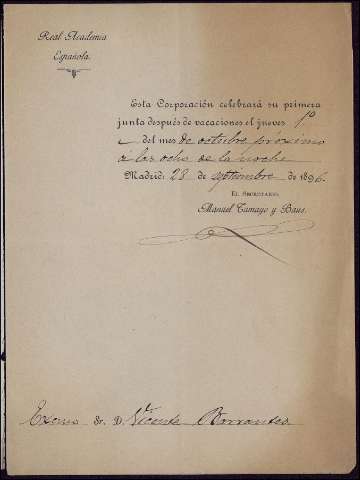 Real Academia
Española.
Esta Corporación celebrará su primera
junta después de vacaciones el jueves 1º
del mes de octubre próximo
á las ocho de la noche
Madrid: 23 de septiembre de 1896.
EL SECRETARIO,
Manuel Tamayo y Baus.
Excmo Sr. D. Vicente Barrantes